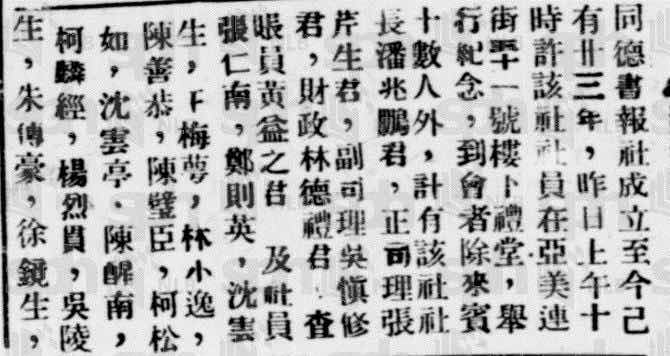 同德書報社成立至今已
有卅三年，昨日上午十
時許該社社員在亞美連
街五十一號樓下禮堂，舉
行紀念，到會者除來賓
十數人外，計有該社社
長潘兆鵬君，正司理張
芹生君，副司理吳愼修
君，財政林德禮君，查
賬員黃益之君 及社員
張仁南，鄭則英，沈雲
生，丁梅夢，林小逸，
陳善恭，陳璧臣，柯松
如，沈雲亭，陳醉南，
柯麟經，楊烈貫，吳陵
生，朱傅豪，徐鏡生，